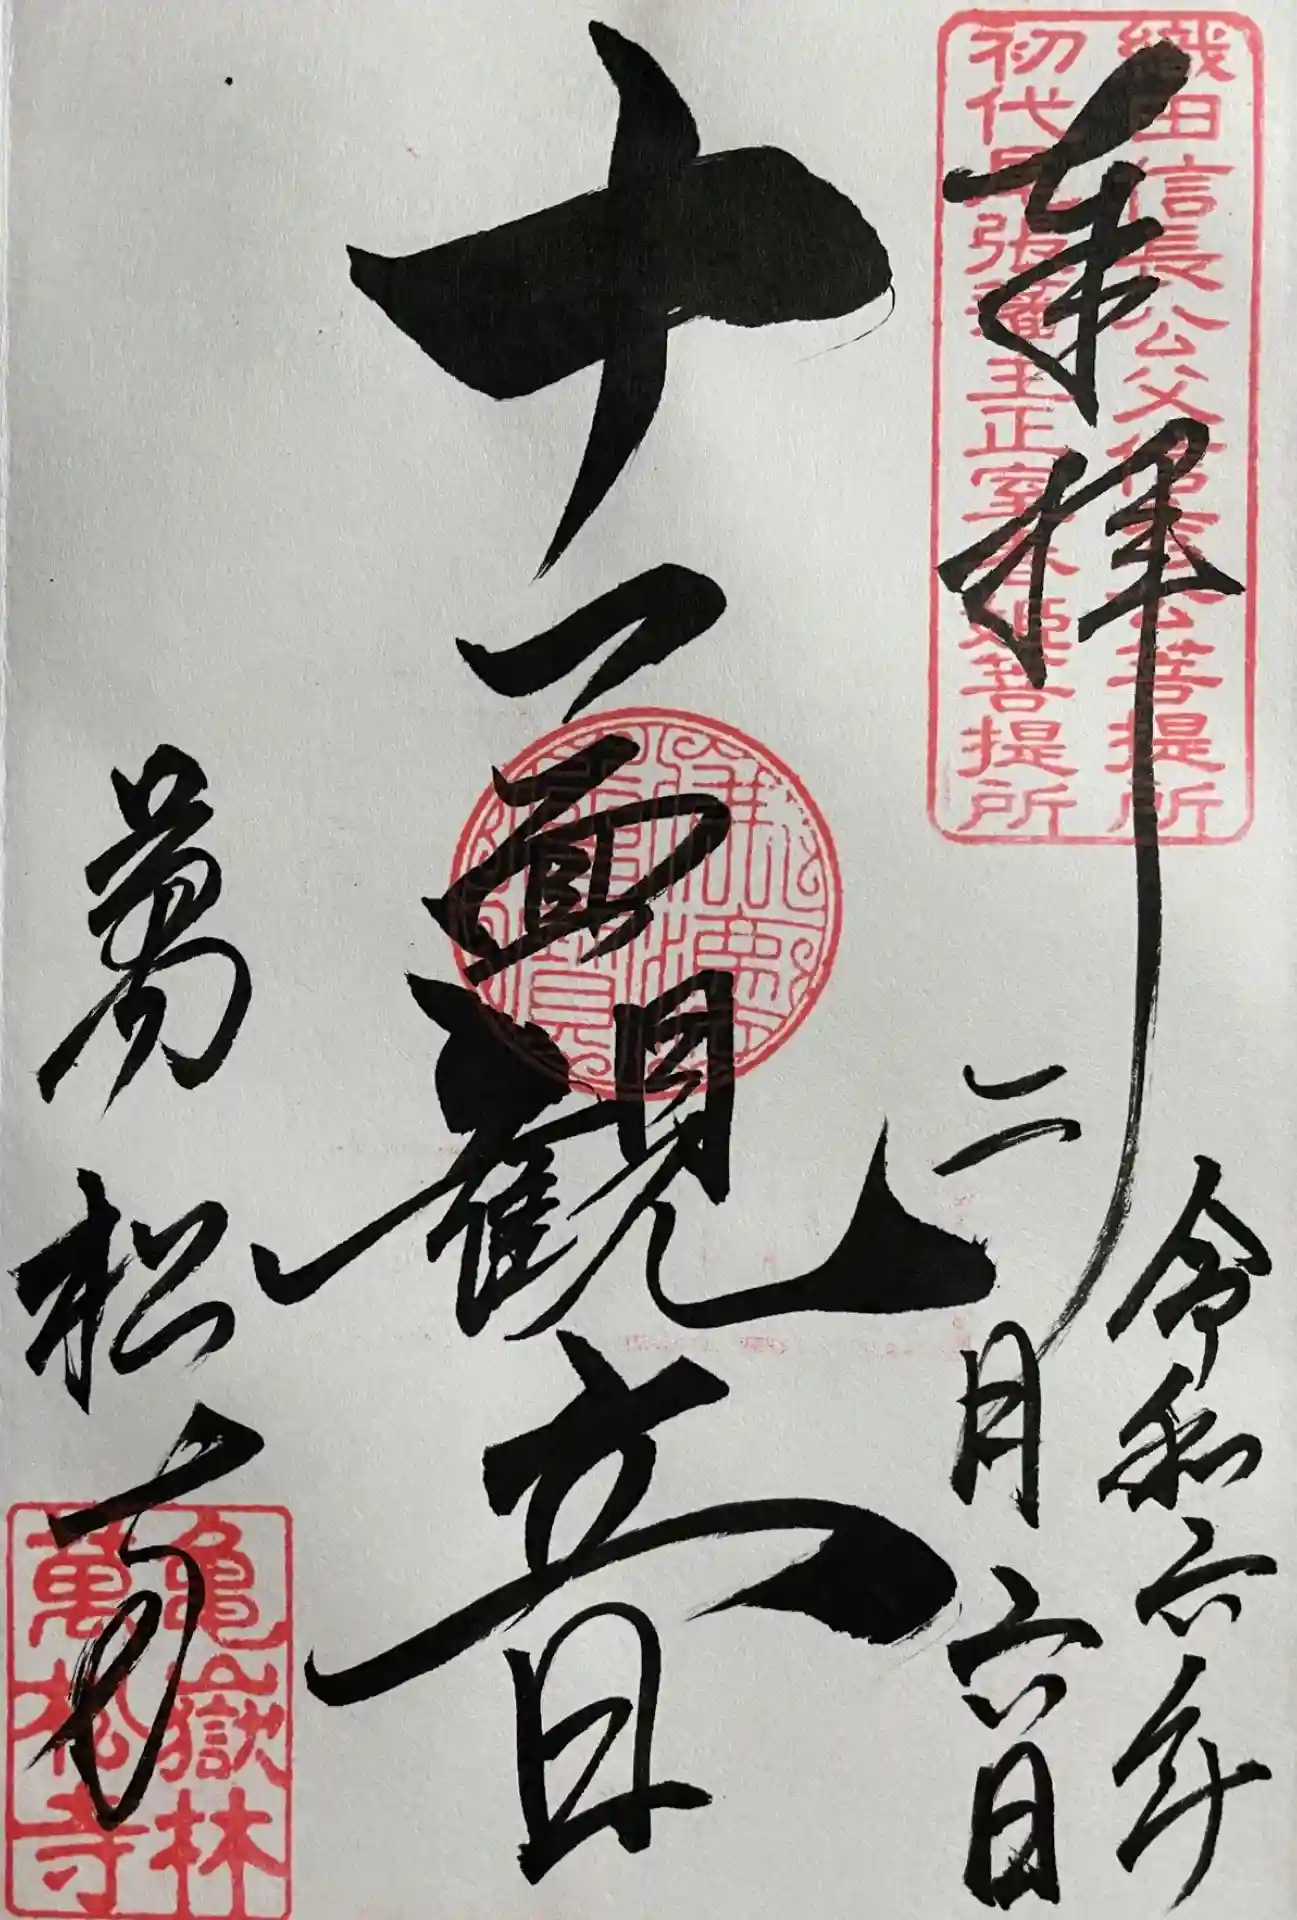 奉拝
令和六年
二月六日
十一面観音
萬松寺
織田信長公父信秀公菩提所
初代尾張藩主正室春姫菩提所
亀嶽林
萬松寺